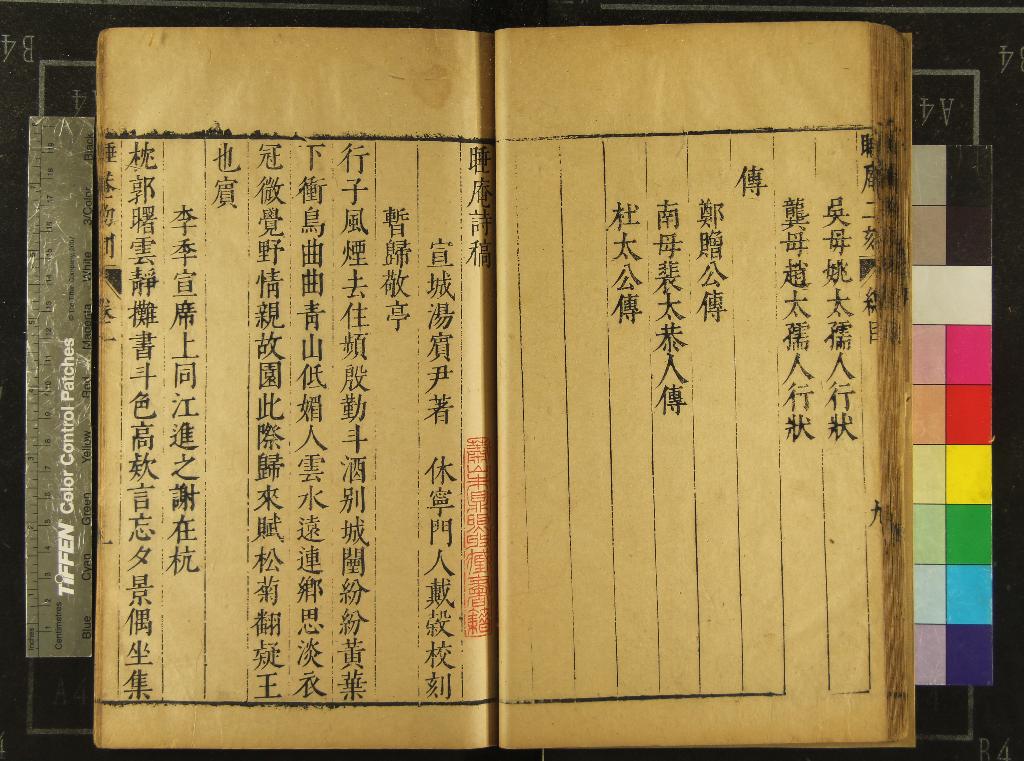 睡庵二刻 總目
吳母姚太孺人行狀
龔母趙太孺人行狀
傳
鄭贈公傳
南母裴太恭人傳
杜太公傳
九
睡庵詩稿
宣城湯賓尹著 休寧門人戴㲄校刻
暫歸敬亭
行子風煙去住頻殷勤斗酒別城闉紛紛黃葉
下衝鳥曲曲青山低媚人雲水遠連鄉思淡衣
冠微覺野情親故園此際歸來賦松菊翻疑王
也賓
李季宣席上同江進之謝在杭
枕郭曙雲靜攤書斗色高欬言忘夕景偶坐集
卷一
TIFFEN Color Control Patches
Centimetres
Inches
Blue
Cyan
Green
Yellow
Red
Magenta
White
3/Color
Black
A4
B4